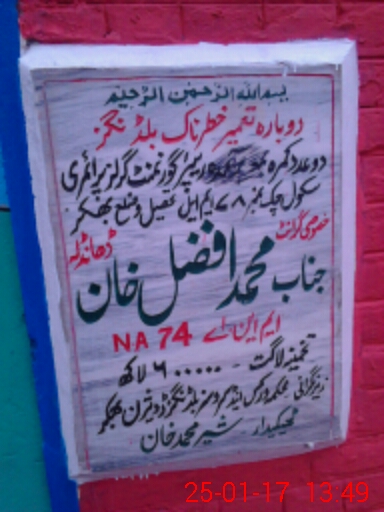 بسم الله الرحمن الرحيم
دوبارہ تعمیر خطرناک بلڈنگز
دو عدد کمرہ گورنمنٹ گرلز پرائمری
سکول چک نمبر ۷۸ ایم ایل تحصیل و ضلع بھکر
خصوصی گرانٹ
جناب محمد افضل خان ڈھانڈلہ
ایم این اے NA 74
تخمینہ لاگت - ۶۰۰۰۰۰ لاکھ
زیر نگرانی محکمہ ورکس اینڈ سروسز بلڈنگز ڈویژن بھکر
ٹھیکیدار - شیر محمد خان
25-01-17 13:49